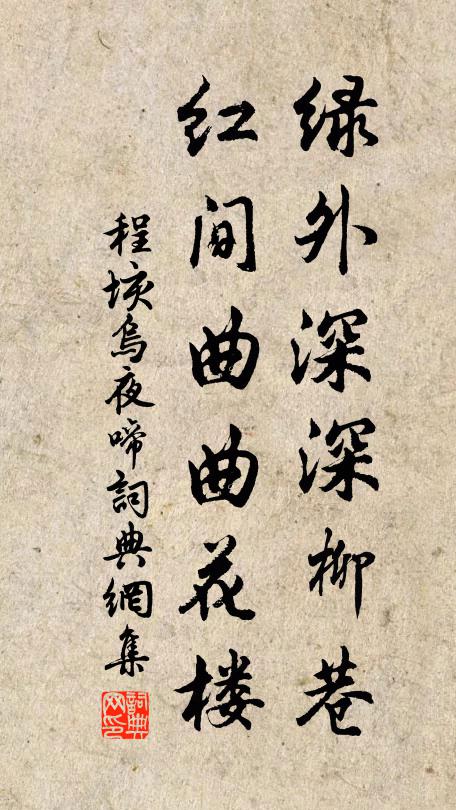 绿外深深柳巷
红间曲曲花楼
程垓乌夜啼词典網集
词典网印